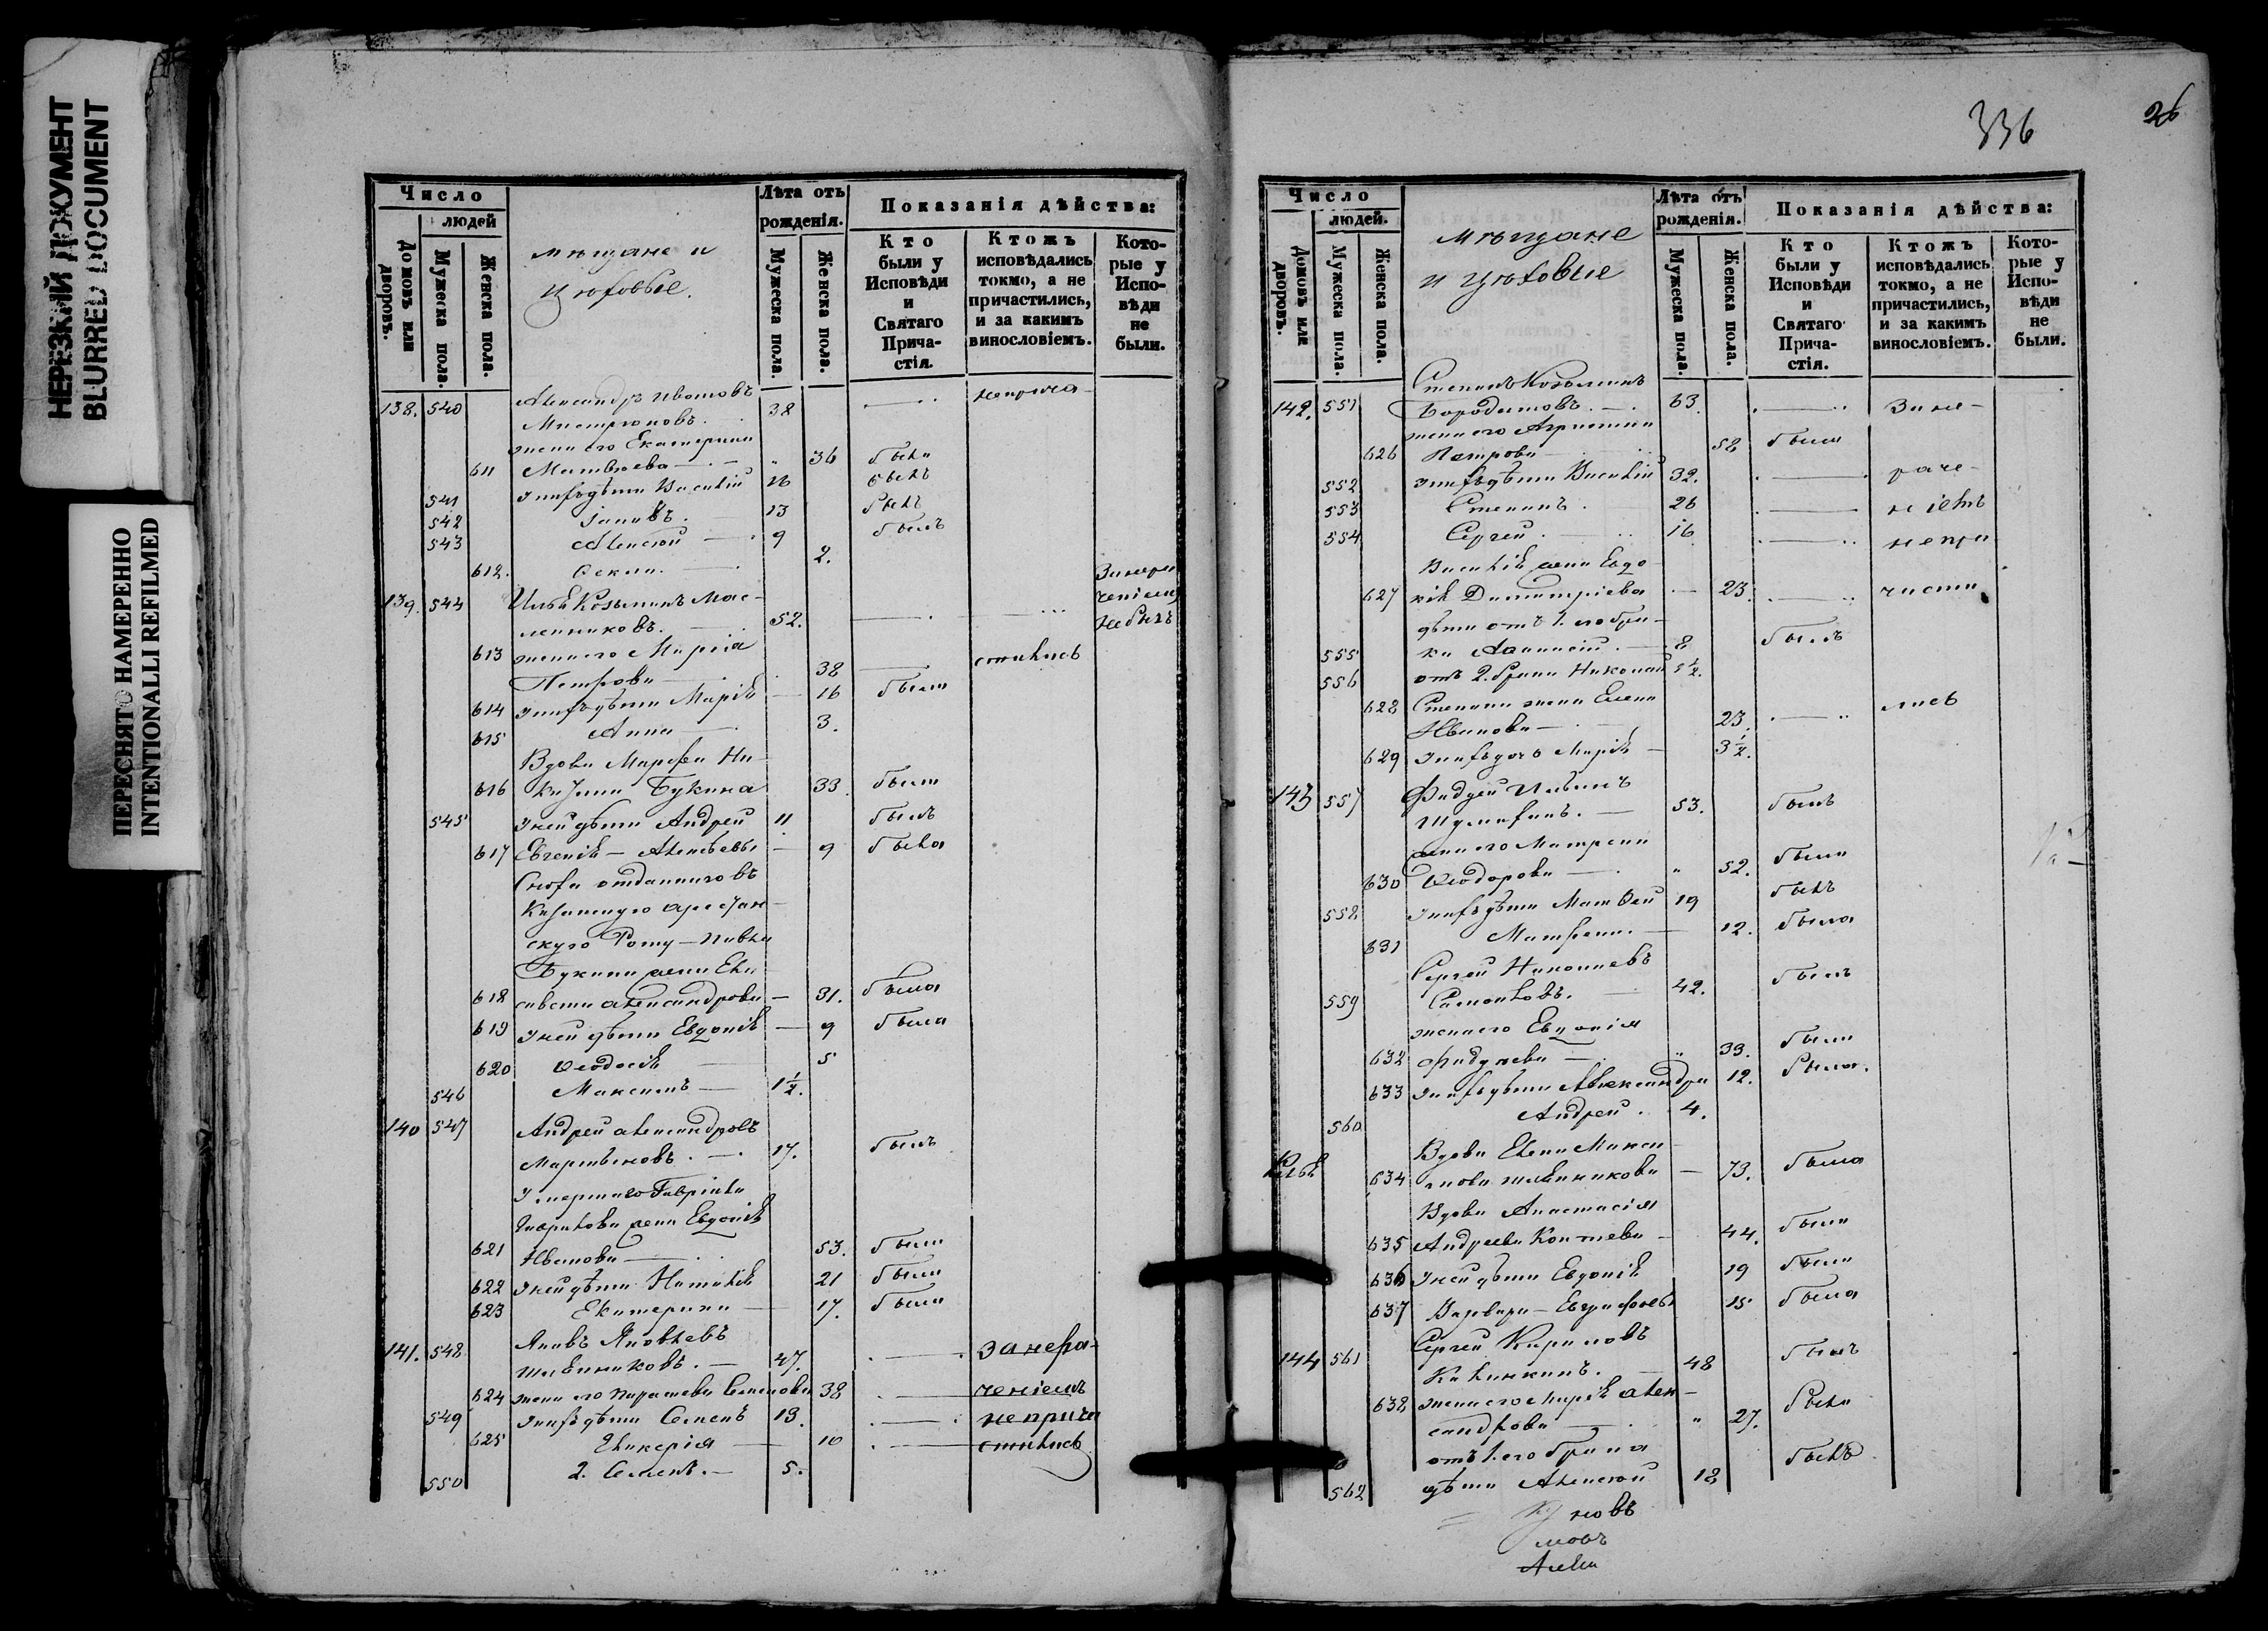 НЕРЕЗКИЙ ДОКУМЕНТ
BLURRED DOCUMENT
ПЕРЕСНЯТО НАМЕРЕННО
INTENTIONALLI REFILMED
Число
людей
Домовъ или дворовъ.
Мужеска пола.
Женска пола.
мѣщане и
цѣховые.
Лѣта отъ рожденія.
Мужеска пола.
Женска пола.
Показанія дѣйства:
Кто были у Исповѣди и Святаго Причастія.
Ктожъ исповѣдались токмо, а не причастились, и за какимъ винословіемъ.
Которые у Исповѣди не были.
138. 540 Александръ Ивановъ
Мистрюковъ. 38 неприча-
жена его Екатерина
611 Матвѣева 36 была
541 у нихъ дѣти Василій 16 былъ
542 Іаковъ. 13 былъ
543 Алексѣй 9 былъ
612. Фекла. 2.
139. 544 Илья Козьминъ Мас-
ленниковъ. 52. За нера ченіемъ не былъ
613 жена его Марѳа
Петрова 38 стились
614 у нихъ дѣти Марія 16 была
615 Анна 3.
Вдова Марѳа Ни-
616 Букина 33. была
545 у ней дѣти Андрей 11 былъ
617 Евгенія Алексѣевы 9 была
Снова отданнаго въ
Казанскую арестан-
скую Роту Павла
Букина жена Ели-
618 савета Александрова 31. была
619 у ней дѣти Евдокія 9 была
620 Ѳеодосія 5
546 Максимъ 1½.
140 547 Андрей Александровъ
Мартыновъ. 17. былъ
Умершаго Гавріила
Гаврилова жена Евдокія
621 Иванова 53. была
622 у ней дѣти Наталія 21 была
623 Екатерина 17. была
141. 548 Яковъ Яковлевъ
47. за нера-
624 жена его Параскева Семенова 38 ченіемъ
549 у нихъ дѣти Семенъ 13. неприча
625 Гликерія 10 стились
550 2. Семенъ. 5.
336
26
Число
людей.
Домовъ или дворовъ.
Мужеска пола.
Женска пола.
мѣщане
и цѣховые
Лѣта отъ рожденія.
Мужеска пола.
Женска пола.
Показанія дѣйства:
Кто были у Исповѣди и Святаго Причастія.
Ктожъ исповѣдались токмо, а не причастились, и за какимъ винословіемъ.
Которые у Исповѣди не были.
142. 551 Степанъ Козьминъ
Бородатовъ. 63. За не-
жена его Агриппина
626 Петрова 58 была
552 у нихъ дѣти Василій 32. раче-
553 Степанъ. 26 ніемъ
554 Сергей. 16 непри
Василія жена Евдо-
627 кія Димитріева 23. части
дѣти отъ 1. его бра-
555 ка Аѳанасій. 8 былъ
556 отъ 2. брака Николай 1½.
628 Степана жена Елена
Иванова 23. лись
629 у нихъ дочь Марія 3½.
143 557 Фаддей Ильинъ
53. былъ
жена его Матрена
630 Ѳеодорова 52. была
558 у нихъ дѣти Матѳей 19 былъ
631 Матрена. 12. была
559 Сергей Николаевъ
42. былъ
жена его Евдокія
632 Фаддеева 39. была
633 у нихъ дѣти Александра 12. была.
560 Андрей. 4.
Вдова Елена Макси-
634 мова 73. была
Вдова Анастасія
635 Андреева 44. была
636 у ней дѣти Евдокія 19 была
637 Варвара Евграфовы 15 была
144 561 Сергей Кириловъ
Калинкинъ. 48 былъ
638 жена его Марія Алек-
сандрова 27. была
отъ 1. его брака
562 дѣти Алексѣй 18 былъ
новъ